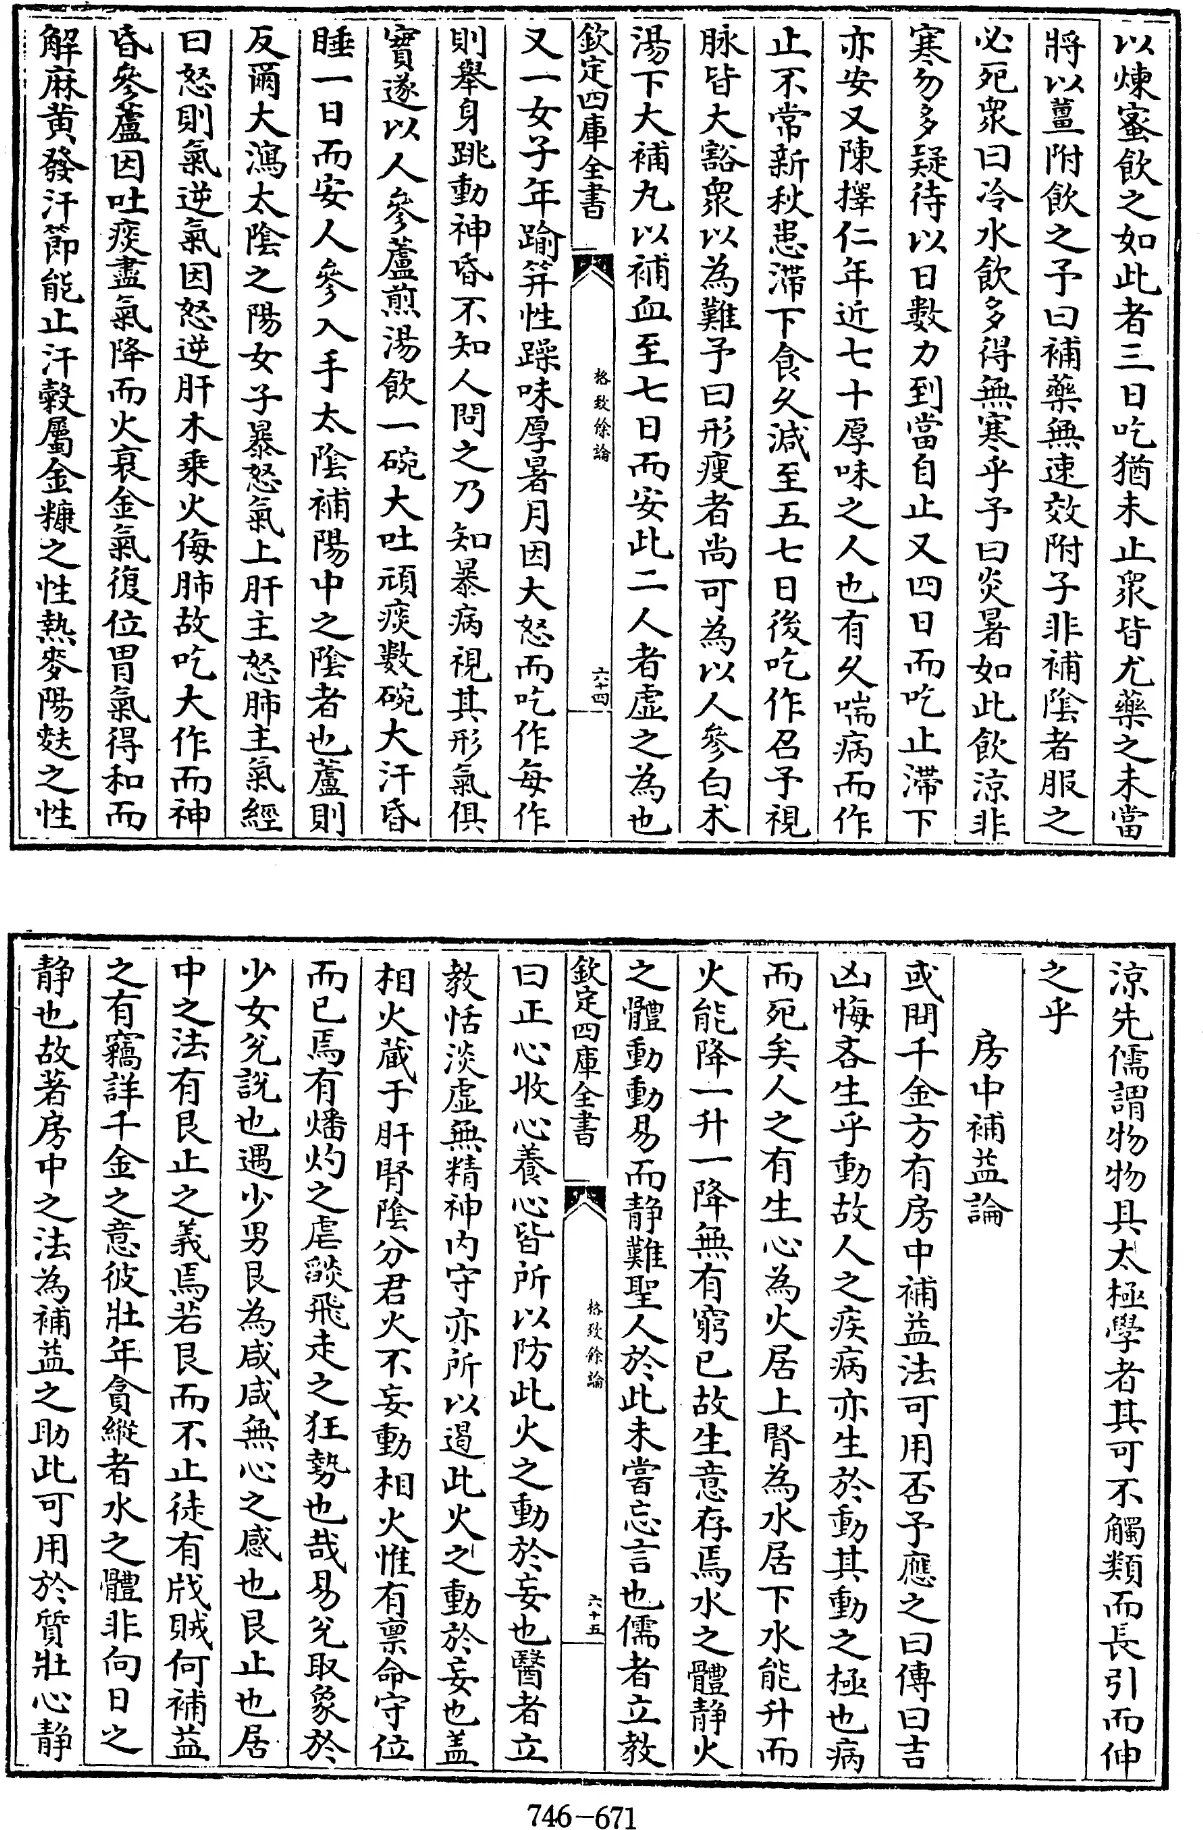 以煉蜜飲之如此者三日吃猶未止衆皆尤藥之未當
將以薑附飲之予曰補藥無速效附子非補隂者服之
必死衆曰冷水飲多得無寒乎予曰炎暑如此飲涼非
寒勿多疑待以日數力到當自止又四日而吃止滯下
亦安又陳擇仁年近七十厚味之人也有久喘病而作
止不常新秋患滯下食久減至五七日後吃作召予視
脉皆大豁衆以為難予曰形瘦者尚可為以人參白术
湯下大補丸以補血至七日而安此二人者虛之為也
欽定四庫全書
格致餘論
六十四
又一女子年踰笄性躁味厚暑月因大怒而吃作每作
則舉身跳動神昏不知人問之乃知暴病視其形氣俱
實遂以人參蘆煎湯飲一碗大吐頑痰數碗大汗昏
睡一日而安人參入手太隂補陽中之隂者也蘆則
反爾大瀉太隂之陽女子暴怒氣上肝主怒肺主氣經
曰怒則氣逆氣因怒逆肝木乘火侮肺故吃大作而神
昏參蘆因吐痰盡氣降而火衰金氣復位胃氣得和而
解麻黄發汗節能止汗穀屬金糠之性熱麥陽麩之性
涼先儒謂物物具太極學者其可不觸類而長引而伸
之乎
房中補益論
或問千金方有房中補益法可用否予應之曰傳曰吉
凶悔吝生乎動故人之疾病亦生於動其動之極也病
而死矣人之有生心為火居上腎為水居下水能升而
火能降一升一降無有窮已故生意存焉水之體靜火
之體動動易而靜難聖人於此未嘗忘言也儒者立教
欽定四庫全書
格致餘論
六十五
曰正心收心養心皆所以防此火之動於妄也醫者立
教恬淡虛無精神内守亦所以遏此火之動於妄也盖
相火藏于肝腎隂分君火不妄動相火惟有禀命守位
而已焉有燔灼之虐燄飛走之狂勢也哉易兊取象於
少女兊說也遇少男艮為咸咸無心之感也艮止也居
中之法有艮止之義焉若艮而不止徒有戕賊何補益
之有竊詳千金之意彼壯年貪縱者水之體非向日之
靜也故著房中之法為補益之助此可用於質壯心靜
746-671